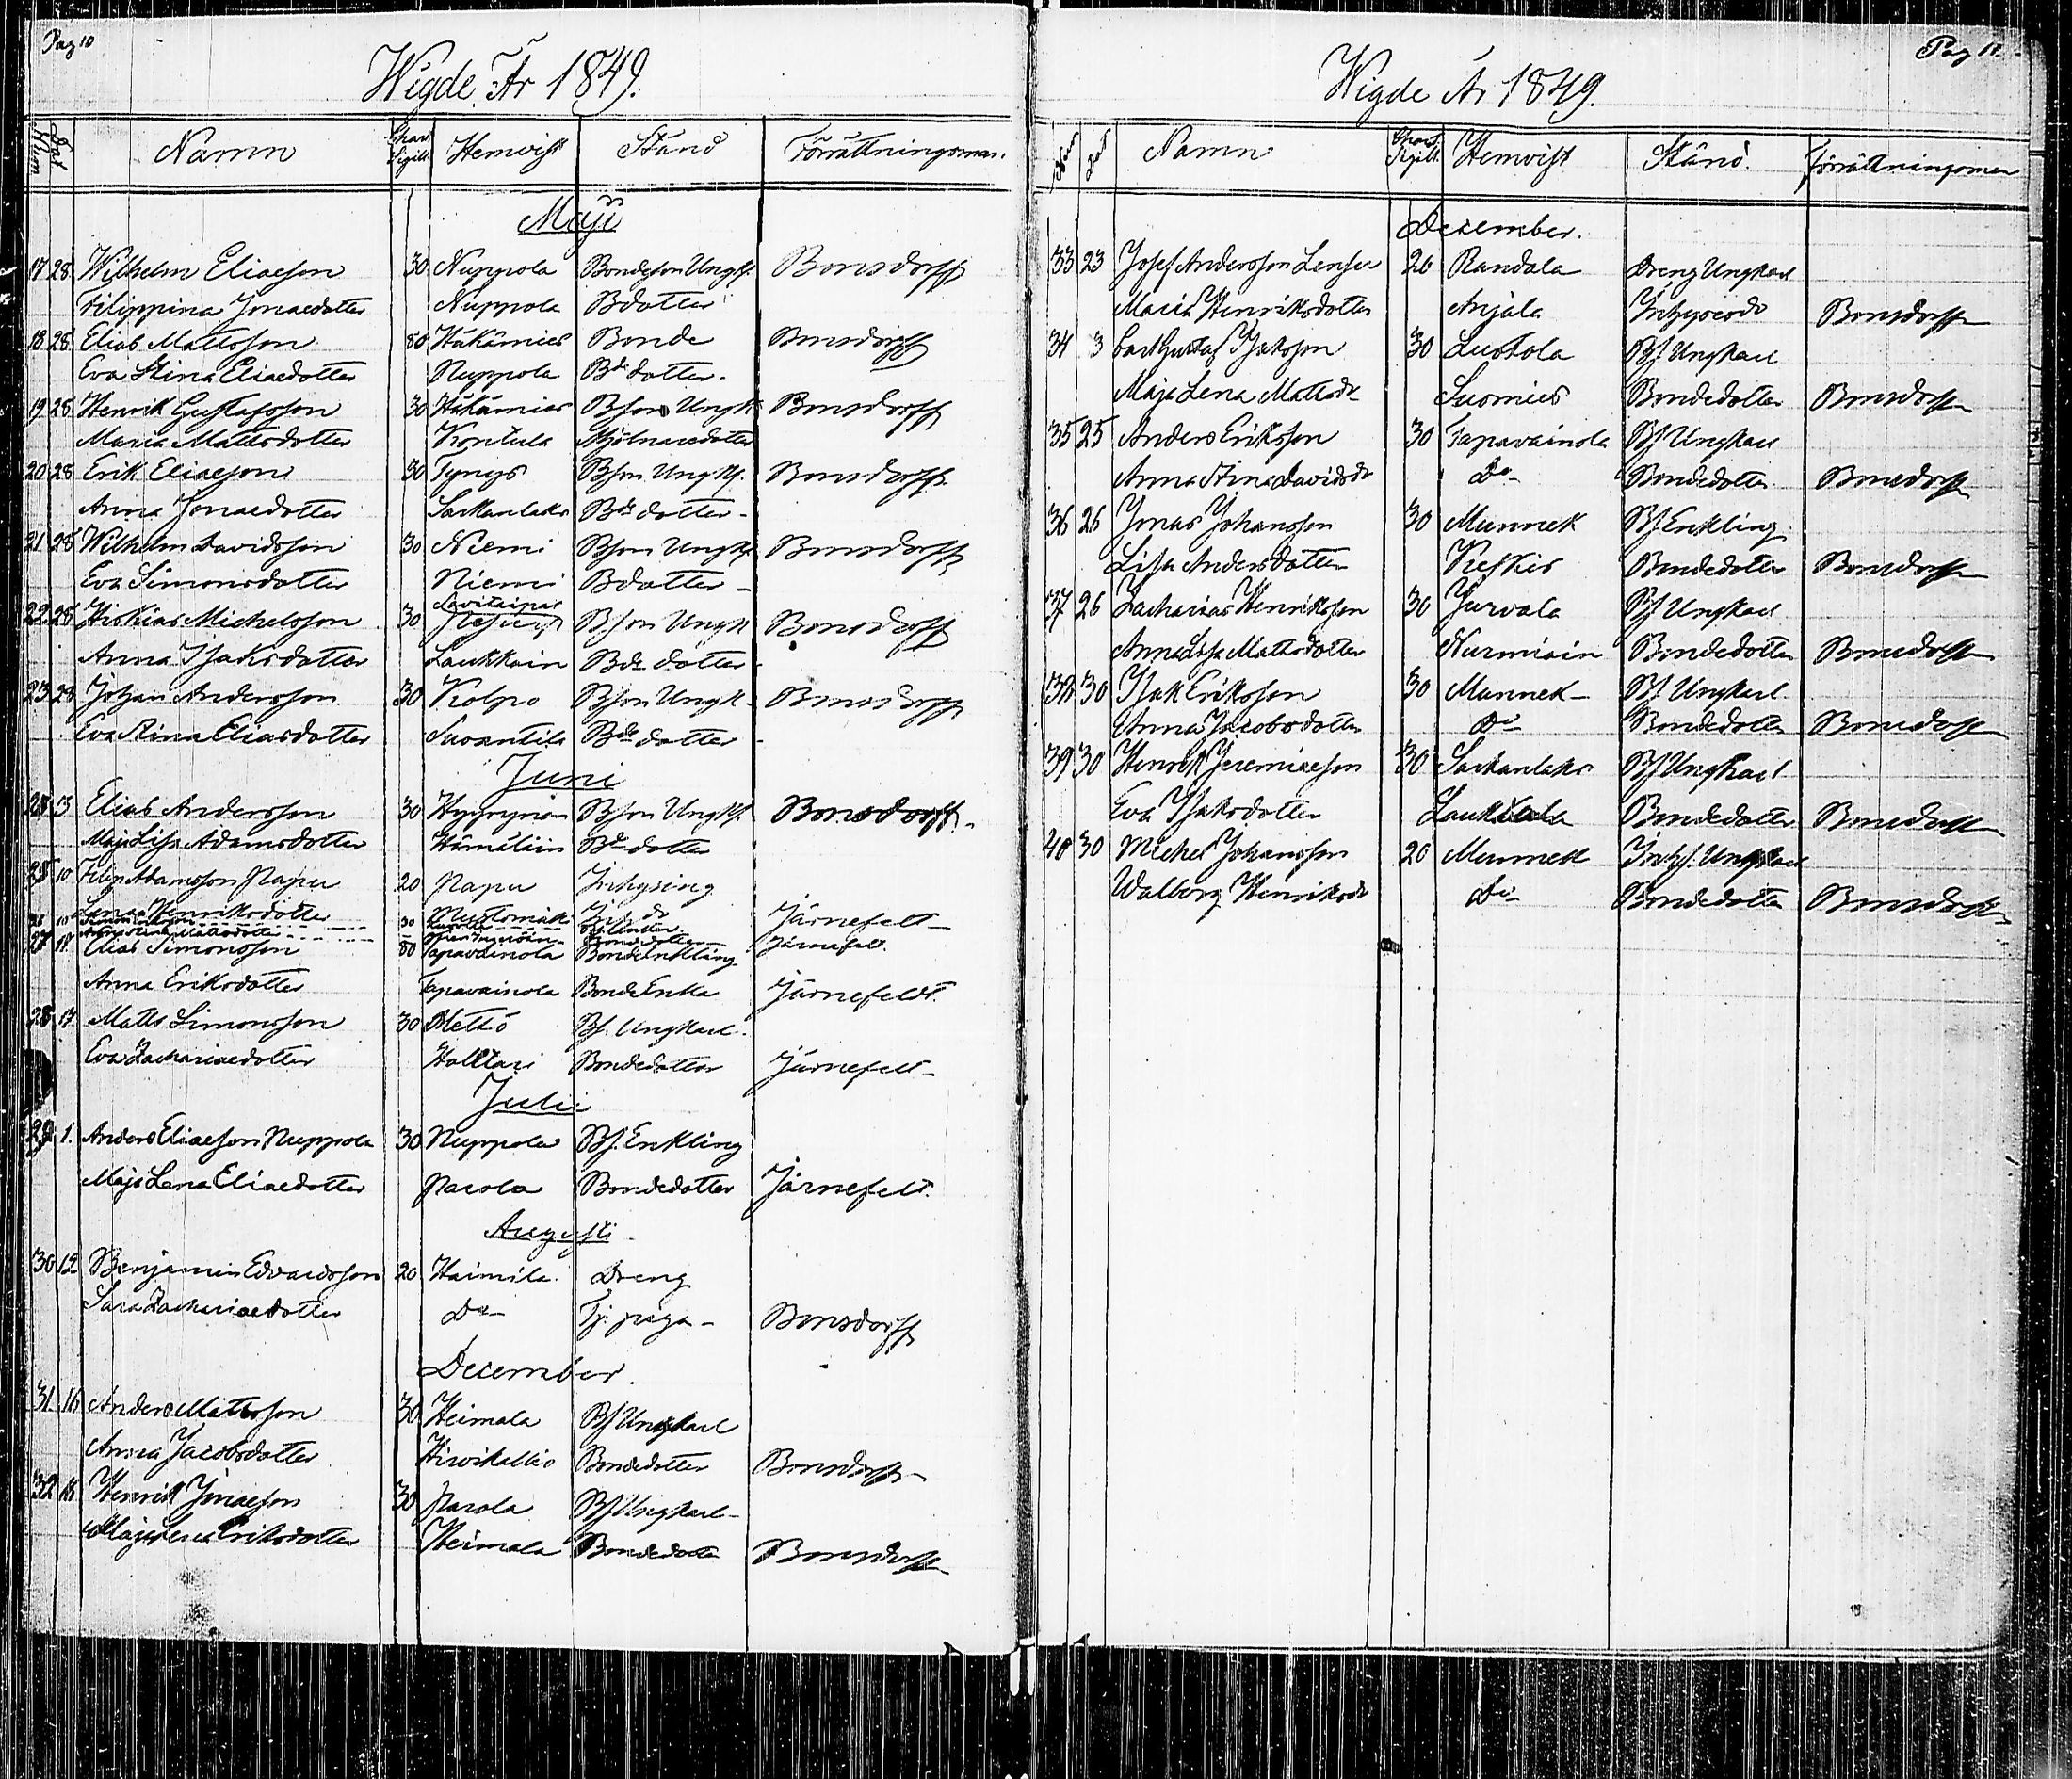 Pag 10
Wigde År 1849.
Num Dat Namn Char Sigill Hemvist Stånd Förrättningsman.
Maji
17 28 Wilhelm Eliasson 30 Nuppola Bondeson Ungk. Bonsdorff
Filippina Jonaedotter Nuppola Bdotter
18 28 Elias Mattsson 80 Häkämies Bonde Bonsdorff
Eva Stina Eliaedotter Nuppola Bde dotter
19 28 Henrik Gustafsson 30 Häkämies Bson Ungk Bonsdorff
Maria Mattsdotter Kontula Mjölnaredotter
20 28 Erik Eliaeson 30 Tyrnys Bson Ungk. Bonsdorff
Anna Jonaedotter Sarkanlaks Bde dotter
21 28 Wilhelm Davidsson 30 Niemi Bson Ungk. Bonsdorff
Eva Simonsdotter Niemi Bdotter
22 28 Hiskias Michelsson 30 Savitaipal Bson Ungk Bonsdorff
Anna Isaksdotter Laukkain Bde dotter
23 28 Johan Andersson 30 Kolpo Bson Ungk. Bonsdorff
Eva Stina Eliasdotter Suoantila Bde dotter
Juni
24 3 Elias Andersson 30 Hyyrynen Bson Ungk. Bonsdorff
Maja Lisa Adamsdotter Hämäläin Bde dotter
25 10 Filip Adamsson Papu 20 Papu Inhysing
Lena Henriksdotter Mustomäk Inh dr Järnefelt
26 10 30
Anna Stina Mattsdotter Bondedotter Järnefelt.
27 17 Elias Simonsson 80 Tapavainola Bonde Enkling
Anna Eriksdotter Tapavainola Bonde Enka Järnefeldt.
28 17 Matts Simonsson 30 Mettö Bs. Ungkarl.
Eva Zachariaedotter Holttari Bondedotter Järnefelt
Julii
29 1. Anders Eliaeson Nuppola 30 Nuppola Bs. Enkling
Maja Lena Eliaedotter Parola Bondedotter Järnefelt.
Augusti
30 12 Benjamin Edvardsson 20 Haimila Dreng
Sara Zachariaedotter Do Tj. piga Bonsdorff
December.
31 16 Anders Mattsson 30 Heimala Bs Ungkarl
Anna Jacobsdotter Hirvikallio Bondedotter Bonsdorff
32 16 Henrik Jonaeson 30 Parola Bs Ungkarl
Maja Lena Eriksdotter Heimala Bondedotter Bonsdorff
Pag 11.
Wigde År 1849.
Num Dat Namn Char Sigill. Hemvist Stånd. Förrättningsman
December.
33 23 Josef Andersson Lensu 20 Randala Dreng Ungkarl
Maria Henriksdotter Anjala Inhyses dr Bonsdorff
34 3 Carl Gustaf Isaksson 30 Lustola Bs. Ungkarl
Maja Lena Mattsdr Suomies Bondedotter Bonsdorff
35 25 Anders Eriksson 30 Tapavainola Bs Ungkarl
Anna Stina Davidsdr Do Bondedotter Bonsdorff
36 26 Jonas Johansson 30 Munnek Bs Enkling
Lisa Andersdotter Keskis Bondedotter Bonsdorff
37 26 Zacharias Henriksson 30 Jurvala Bs Ungkarl
Anna Lisa Mattsdotter Nurmiain Bondedotter Bonsdorff
38 30 Isak Eriksson 30 Munnek Bs Ungkarl
Anna Jacobsdotter Do Bondedotter Bonsdorff
39 30 Henrik Jeremiaeson 30 Sarkanlaks Bs Ungkarl
Eva Isaksdotter Laukkala Bondedotter Bonsdorff
40 30 Michel Johansson 20 Munnek Inhs. Ungkarl
Walborg Henriksdr Do Bondedotter Bonsdorff